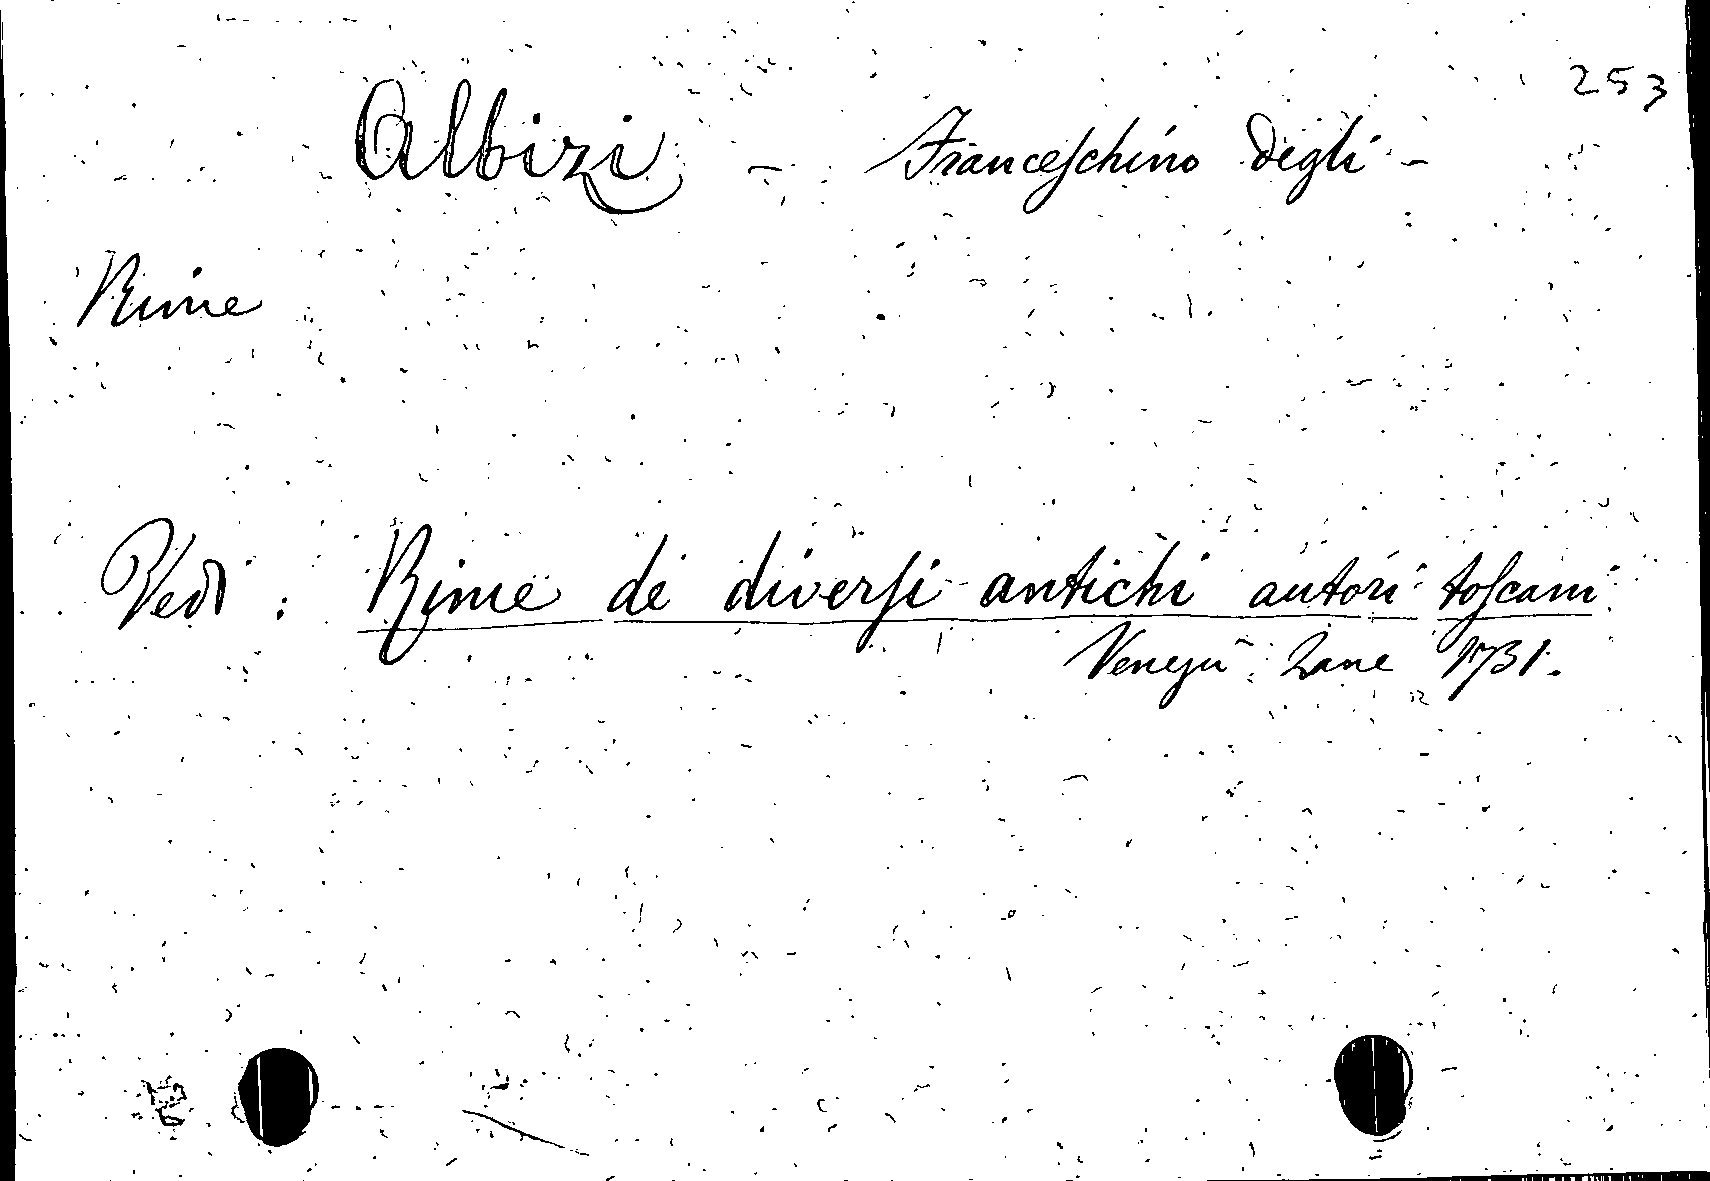 253
Albizi - Franceschino degli -
Rime
Vedi : Rime di diversi antichi autori toscani
Zane 1731.